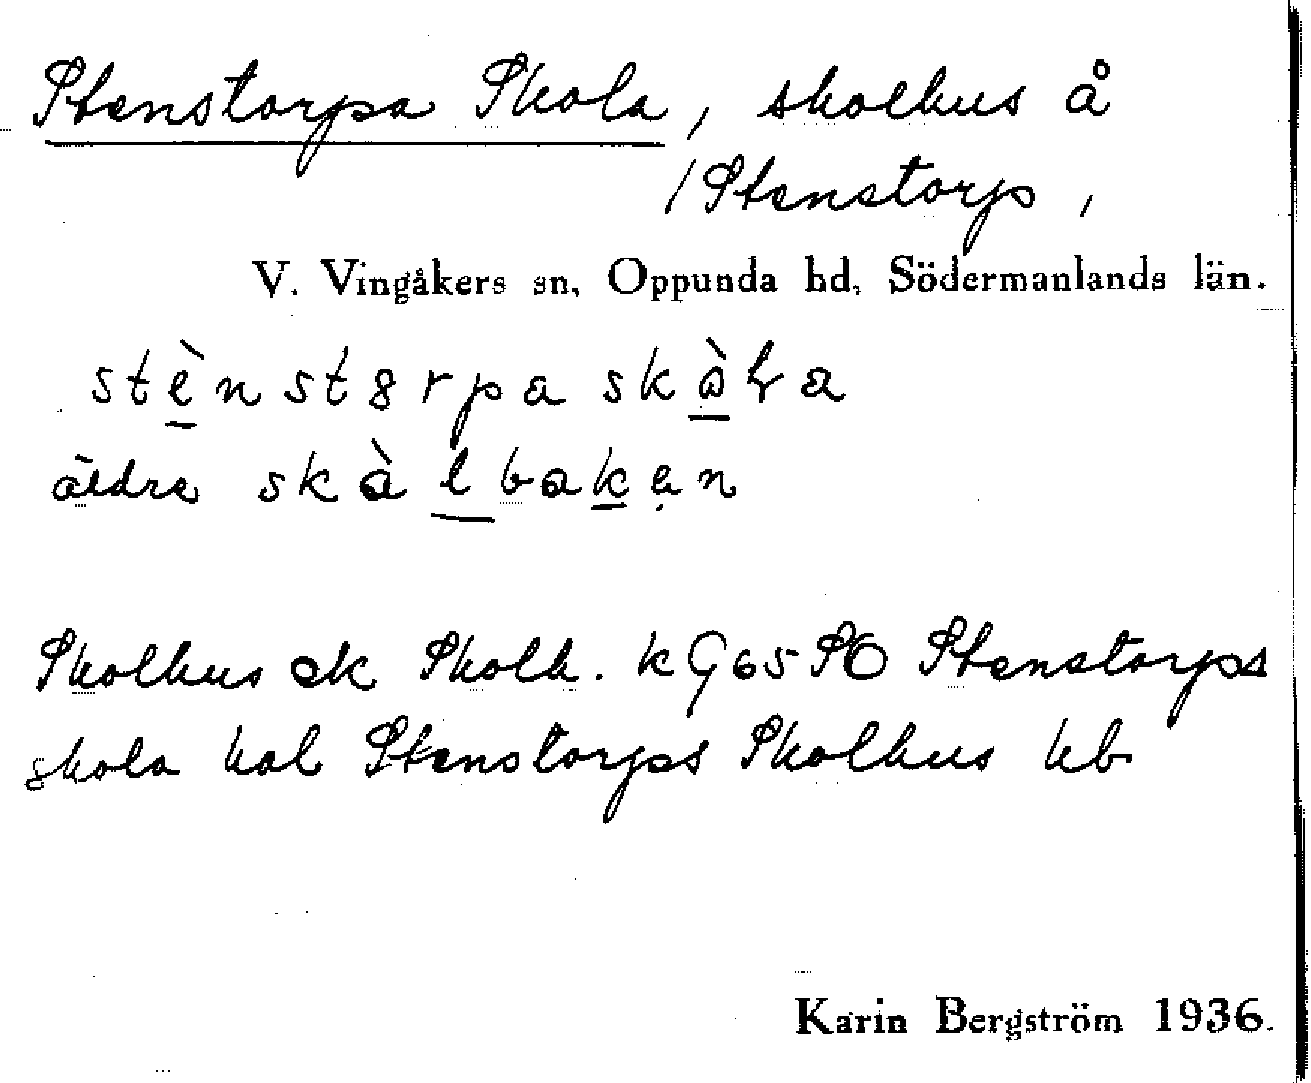 Stenstorpa Skola, skolhus å
/Stenstorp,
V. Vingåkers sn, Oppunda hd, Södermanlands län.
stènst8rpa skàla
äldre skàlbakan
Skolhus ek Skolh. kG65SO Stenstorps
skola hal Stenstorps Skolhus hb
Karin Bergström 1936.